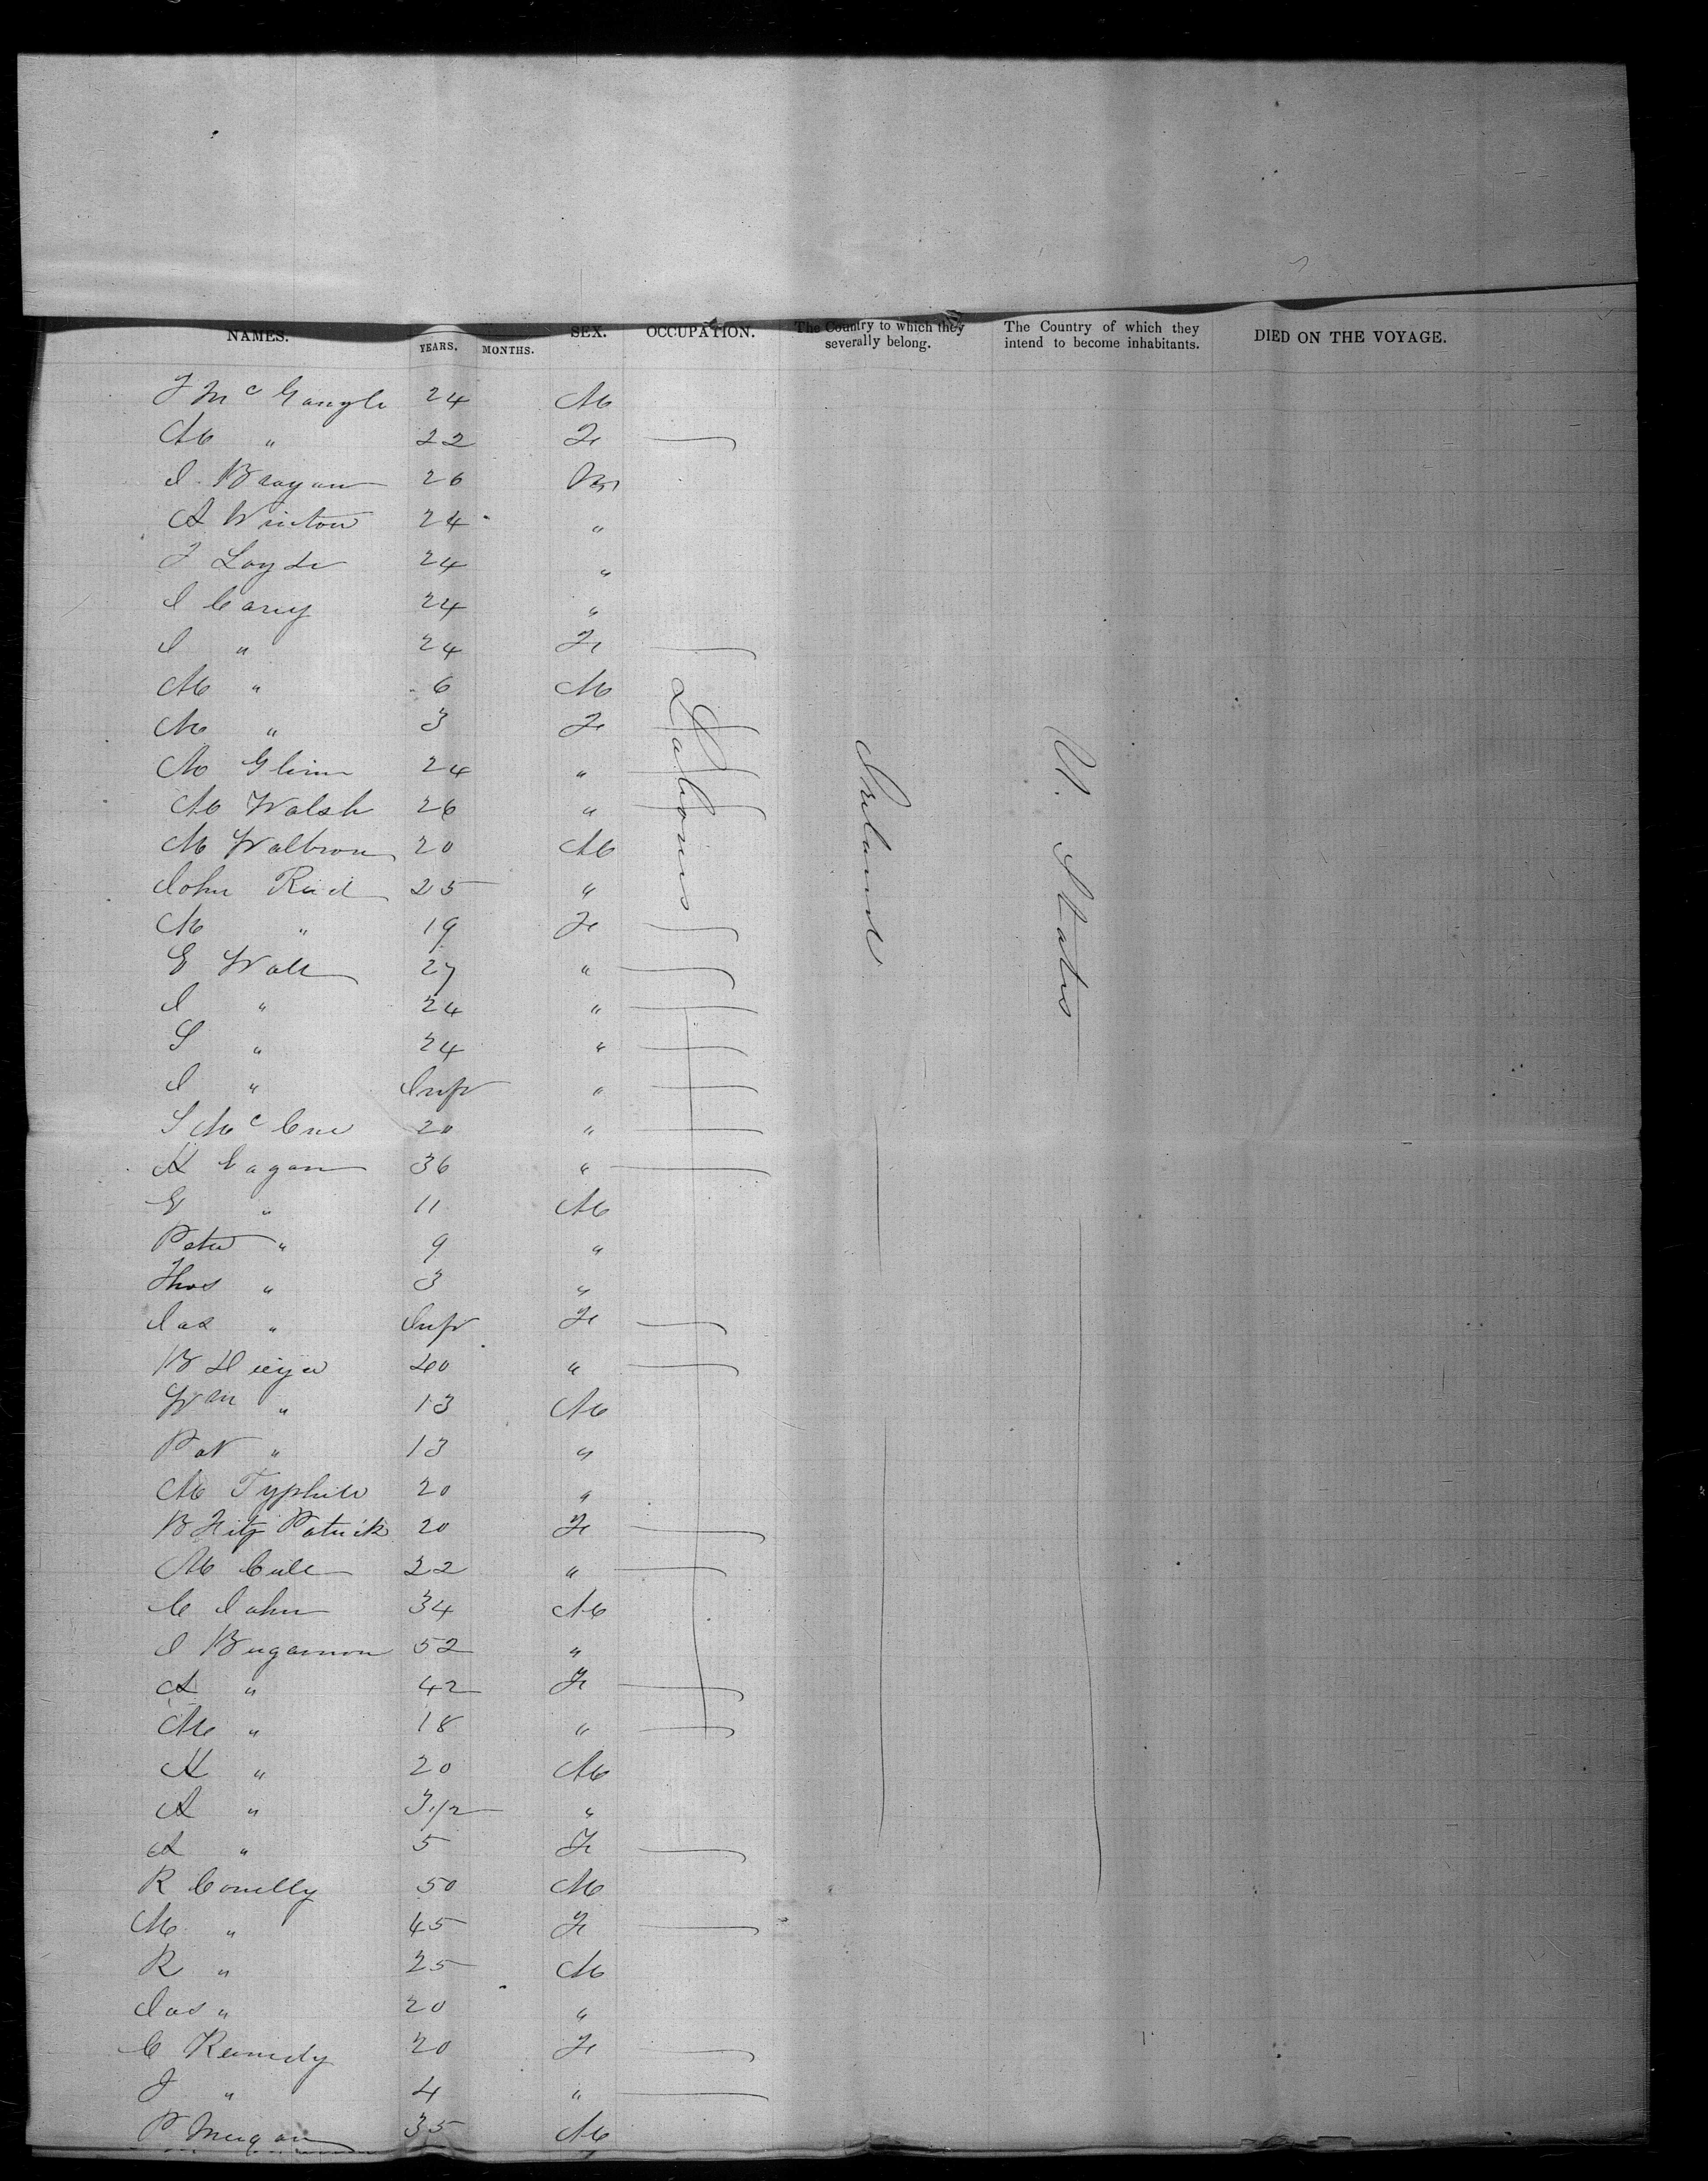 NAMES. YEARS. MONTHS. SEX. OCCUPATION. The Country to which they severally belong. The Country of which they intend to become inhabitants. DIED ON THE VOYAGE.
J McGangle 24 M
M " 22 Fe
J. Brayan 26 M
A Winton 24 "
J Loyde 24 "
J Carey 24 "
J " 24 Fe
M " 6 M
M " 3 Fe
M Glinn 24 "
M Walsh 26 "
M Walbron 20 M
John Reid 25 "
M " 19 Fe
E Wall 27 "
J " 24 "
S " 24 "
J " Inft "
S McCue 20 "
K Eagan 36 "
E " 11 M
Peter " 9 "
Thos " 3 "
Jas " Inft Fe
B 40 "
Wm " 13 M
Pat " 13 "
M 20 "
B Fitz Patrick 20 Fe
M Cull 22 "
C John 34 M
J 52 "
A " 42 Fe
M " 18 "
K " 20 M
A " 3 1/2 "
A " 5 Fe
R Conelly 50 M
M " 45 Fe
R " 25 M
Jas " 20 "
C Kennedy 20 Fe
J " 4 "
P 35 M
Laborers
Ireland
U. States